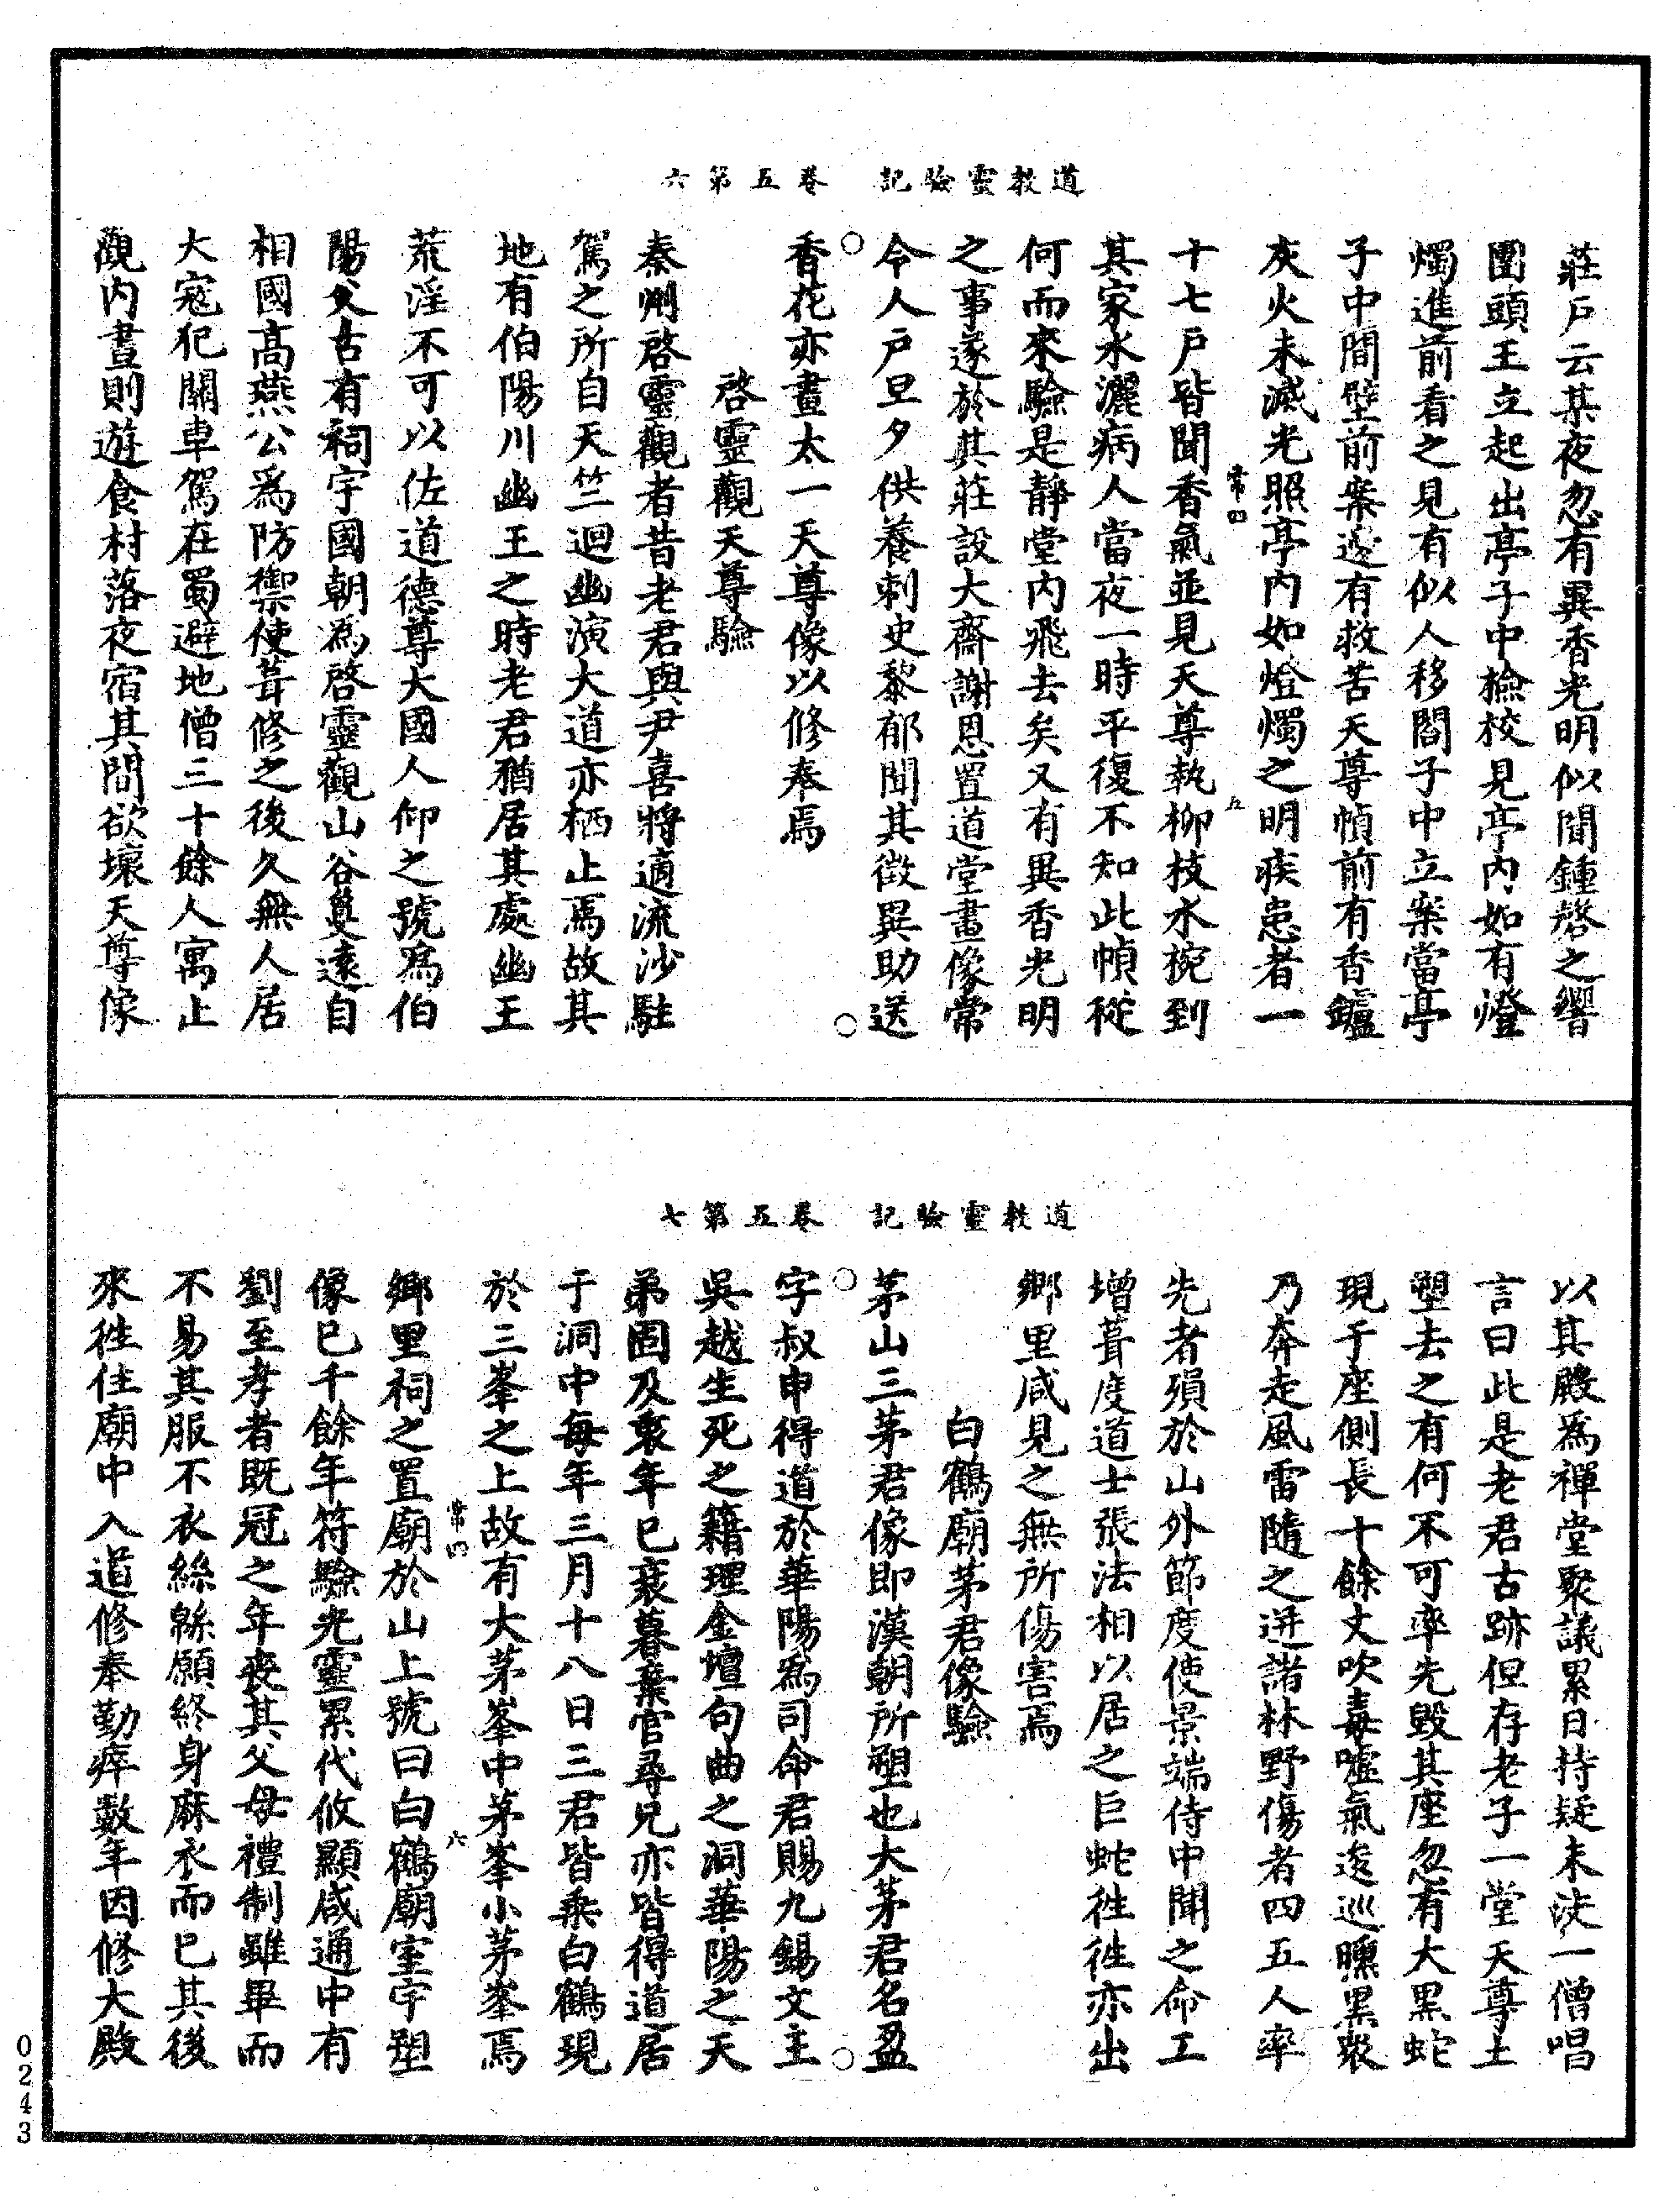 道教靈驗記　卷五第六
莊戶云某夜忽有異香光明似聞鍾磬之響
團頭王立起出亭子中撿校見亭內如有燈
燭進前看之見有似人移閤子中立案當亭
子中間壁前案邊有救苦天尊幀前有香鑪
灰火未滅光照亭內如燈燭之明疾患者一
常四　五
十七戶皆聞香氣並見天尊執柳枝水椀到
其家水灑病人當夜一時平復不知此幀從
何而來驗是靜堂內飛去矣又有異香光明
之事遂於其莊設大齋謝恩置道堂畫像常
令人戶旦夕供養刺史黎郁聞其徵異助送
香花亦畫太一天尊像以修奉焉
啓靈觀天尊驗
秦州啓靈觀者昔老君與尹喜將適流沙駐
駕之所自天竺迴幽演大道亦栖止焉故其
地有伯陽川幽王之時老君猶居其處幽王
荒淫不可以佐道德尊大國人仰之號爲伯
陽父古有祠宇國朝爲啓靈觀山谷夐遠自
相國高燕公爲防禦使葺修之後久無人居
大寇犯關車駕在蜀避地僧三十餘人寓止
觀內晝則遊食村落夜宿其間欲壞天尊像
道教靈驗記　卷五第七
以其殿爲禪堂聚議累日持疑未決一僧唱
言曰此是老君古跡但存老子一堂天尊土
塑去之有何不可率先毀其座忽有大黑蛇
現于座側長十餘丈吹毒噓氣逡巡曛黑衆
乃奔走風雷隨之迸諸林野傷者四五人率
先者殞於山外節度使景端侍中聞之命工
增葺度道士張法相以居之巨蛇徃徃亦出
鄉里咸見之無所傷害焉
白鶴廟茅君像驗
茅山三茅君像即漢朝所塑也大茅君名盈
字叔申得道於華陽爲司命君賜九錫文主
吳越生死之籍理金壇句曲之洞華陽之天
弟固及衷年已衰暮棄官尋兄亦皆得道居
于洞中每年三月十八日三君皆乘白鶴現
於三峯之上故有大茅峯中茅峯小茅峯焉
常四　六
鄉里祠之置廟於山上號曰白鶴廟室宇塑
像已千餘年符驗光靈累代攸顯咸通中有
劉至孝者既冠之年喪其父母禮制雖畢而
不易其服不衣絲緜願終身麻衣而已其後
來徃住廟中入道修奉勤瘁數年因修大殿
0243